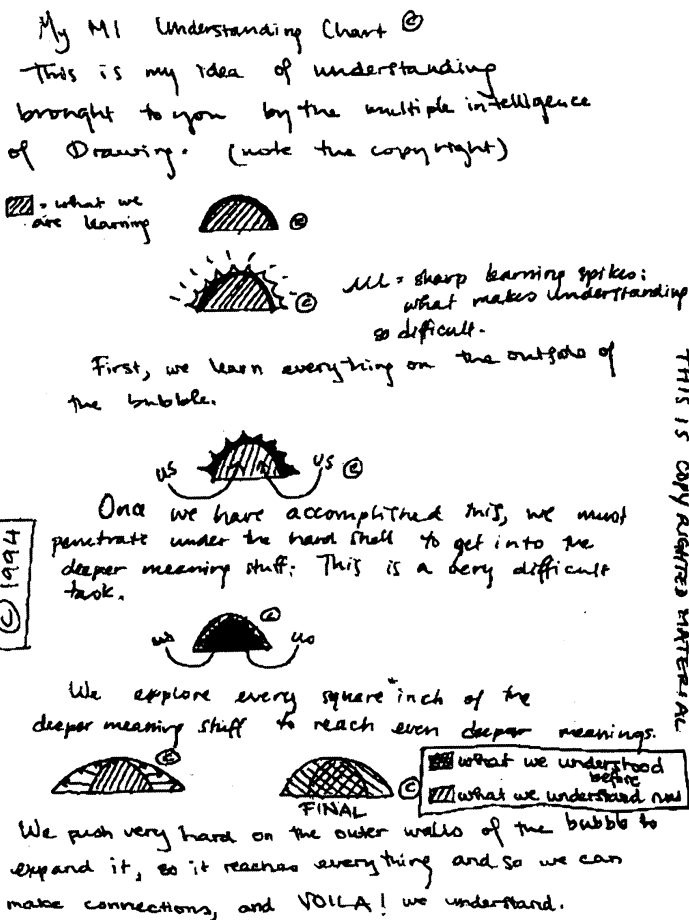 My MI Understanding Chart ©
This is my idea of understanding
brought to you by the multiple intelligence
of Drawing. (note the copyright)
= what we
are learning
©
©
= sharp learning spikes:
what makes understanding
so difficult.
First, we learn everything on the outside of
the bubble.
us us ©
Once we have accomplished this, we must
penetrate under the hard shell to get into the
deeper meaning stuff: This is a very difficult
task.
© 1994
THIS IS COPYRIGHTED MATERIAL
©
us us
We explore every square inch of the
deeper meaning stuff to reach even deeper meanings.
©
©
FINAL
what we understood
before
what we understand now
We push very hard on the outer walls of the bubble to
expand it, so it reaches everything and so we can
make connections, and VOILA! we understand.